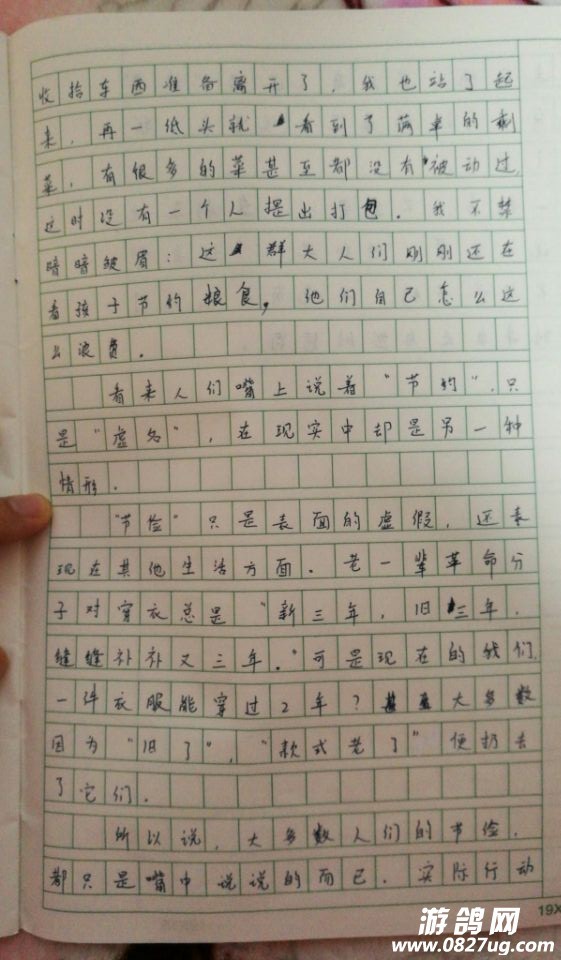 收拾东西准备离开了，我也站了起
来，再一纸头就看到了满桌的剩
菜，有很多的菜甚至都没有被动过，
这时没有一个人提出打包。我不禁
暗暗皱眉：这群大人们刚刚还在
看孩子节约粮食，他们自己怎么这
么浪费。
看来人们嘴上说着“节约”，只
是“虚名”，在现实中却是另一种
情形。
“节俭”只是表面的虚假，还表
现在其他生活方面。老一辈革命分
子对穿衣总是“新三年，旧三年，
缝缝补补又三年。”可是现在的我们，
一件衣服能穿过2年？大多数
因为“旧了”，“款式老了”便扔去
了它们。
所以说，大多数人们的节俭，
都只是嘴中说说的而已。实际行动
19X
游鸽网
www.0827ug.com